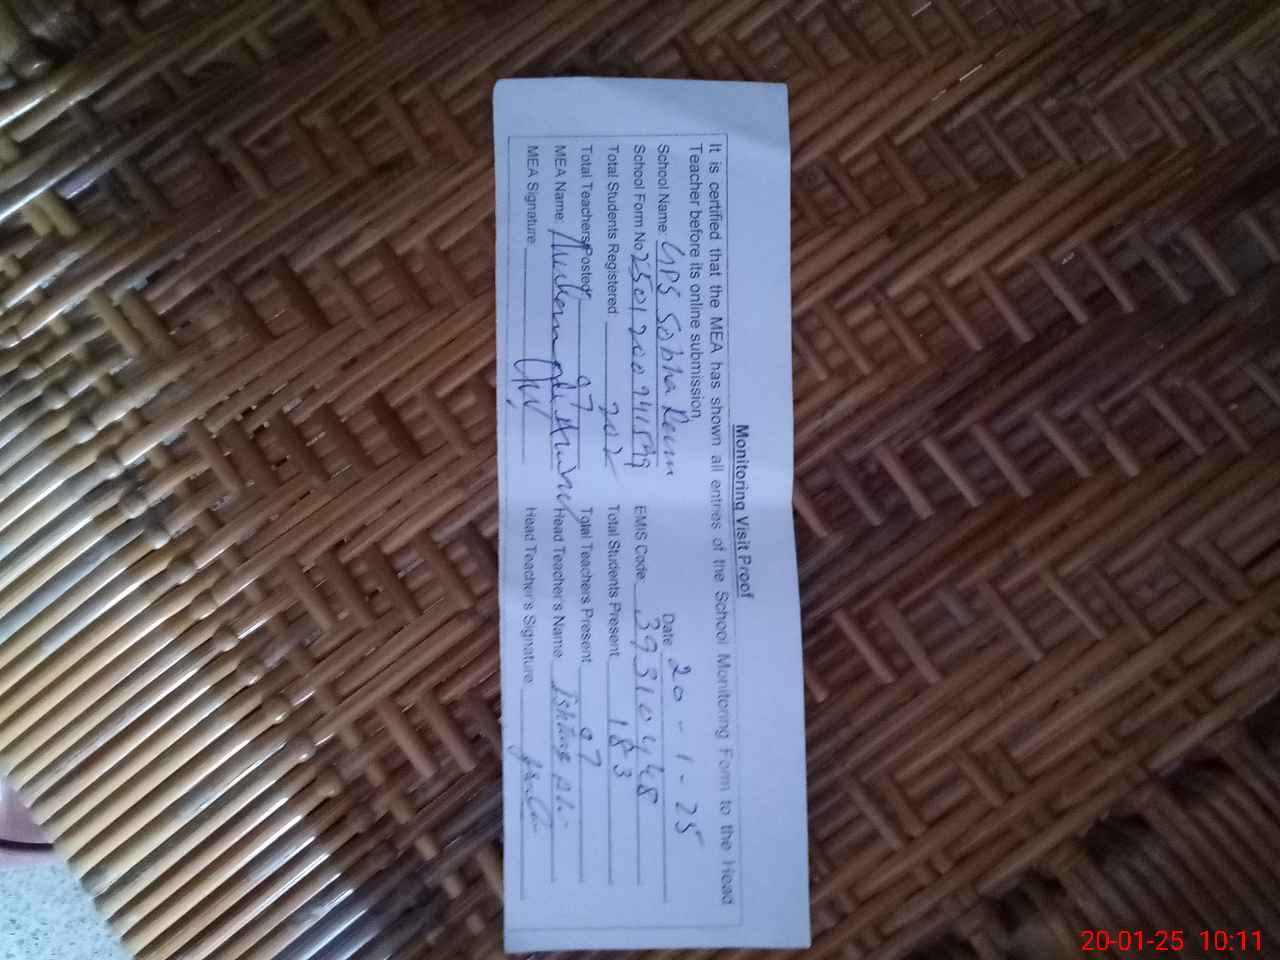 Monitoring Visit Proof
It is certified that the MEA has shown all entries of the School Monitoring Form to the Head
Teacher before its online submission
School Name: GPS Sobha Date 20-1-25
School Form No EMIS Code 39310448
Total Students Registered: 202 Total Students Present 183
Total Teachers Posted: 07 Total Teachers Present 07
MEA Name: Head Teacher's Name
MEA Signature Head Teacher's Signature
20-01-25 10:11